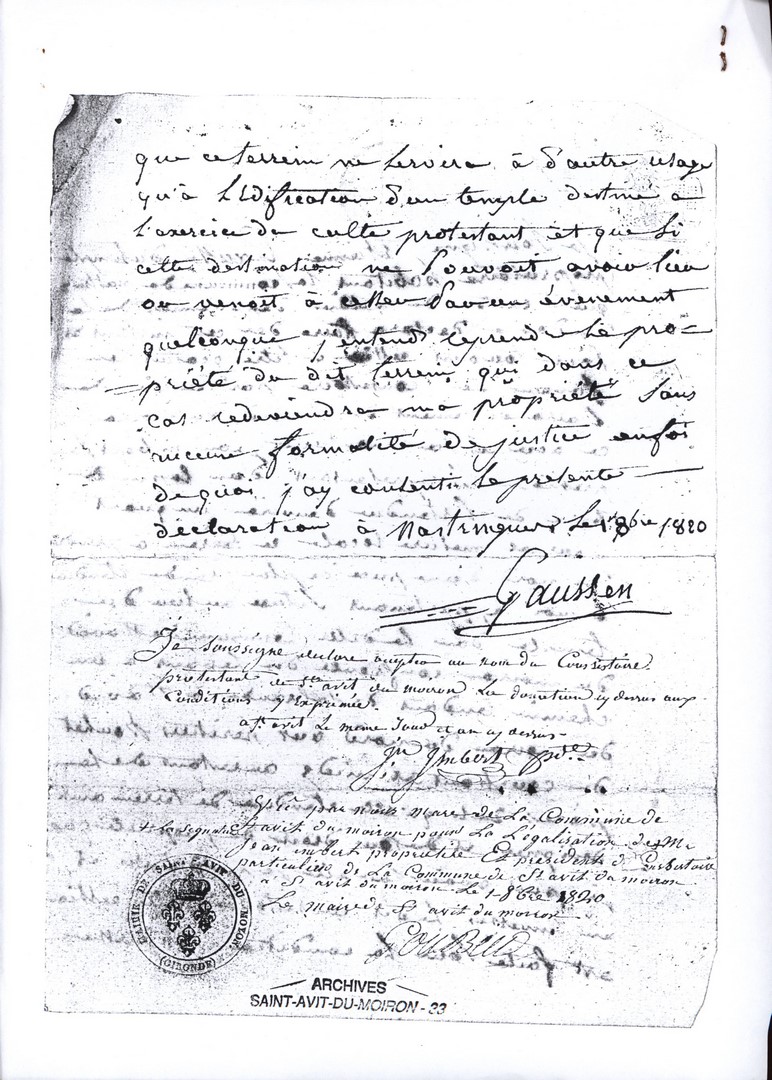 que ce terrein ne servira à d'autre usage
qu'à l'Edification d'un temple destiné a
l'axercice du culte protestant et que si
cette destination ne pouvoit avoir lieu
ou venoit à cesser par un évenement
quelconque j'entends reprendre la pro=
=priété du dit terrein, qui dans ce
cas redeviendra ma propriété sans
aucune formalité de justice enfoi
de quoi j'ay consenti la présente
déclaration à le 1 8bre 1820
Gaussen
Je soussigné declare accepter au nom du Consistoire
protestant de St. avit du moiron La donation cy dessus aux
Conditions y Exprimée.
a St. avit Le meme Jour et an cy dessus
Jn Imbert
par nous Mare de La Commune de
+ La segnature
St avit du moiron pour La Légalisation de Mr
Jean imbert propriétire Et président du Consistoire
particulier de La Commune de St avit du moiron
à St avit du moiron le 1 8bre 1820
Le maire de St avit du moiron
MAIRIE DE SAINT AVIT DU MOIRON
(GIRONDE)
ARCHIVES
SAINT-AVIT-DU-MOIRON - 33